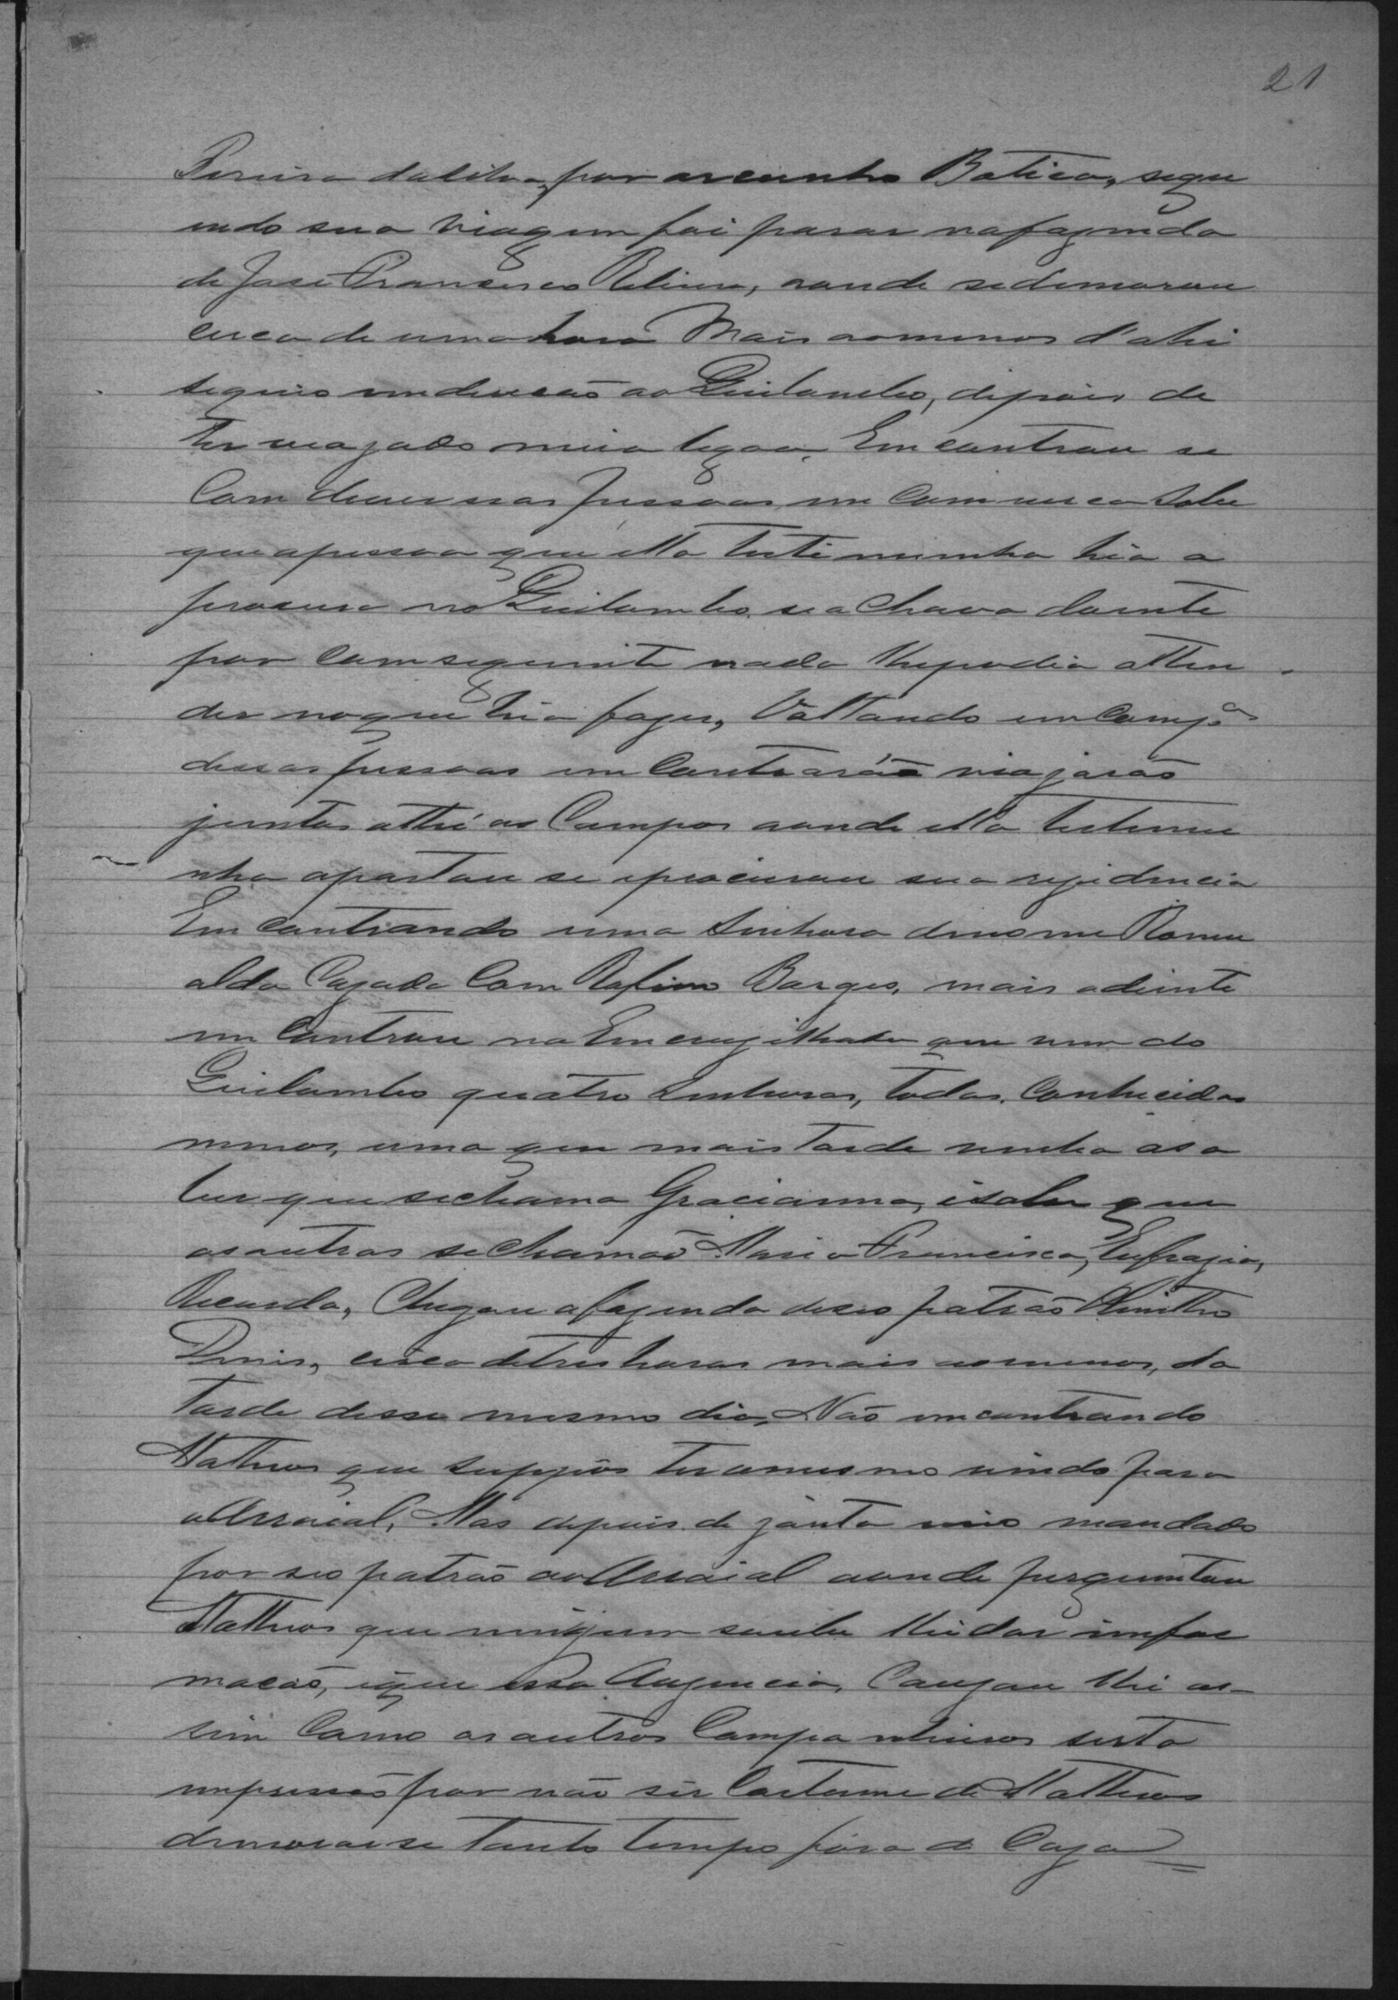 21
Pereira da Silva, por arcunho Botica, segu
indo sua viagem foi parar na fazenda
de José Francisco Ribeiro, aonde se demorou
cerca de uma hora Mais ao menos d'ahi
seguio em direcão ao Quilombo, dipois de
ter viajado meia legoa, Emcontrou se
Com diversas pessoas em Cam
que a pessoa que ella testimunha hia a
procura no Quilombo se a Chava doente
por Comseguinte nada lhe podia atten
der no que hia fazer, Voltando em Comp.ª
dessas pessoas em Contrarão viajarão
juntos athé ao Campos aonde ella testemu
nha apartou se e procurou sua rezidencia
Emcontrando uma Sinhora de nome Romu
alda Cazada Com Rofino Borges, mais adiente
em Controu na Emcruzilhada que vem do
Quilombo quatro Senhoras, todas Conhecidas
menos, uma que mais tarde venho a sa
ber que se chama Gracianna, i sabe que
as outras se Chamão Maria Francisca, Eufrazia,
Ricarda, Chegou a fazenda de seo patrão
Diniz, cerca de tres horas mais ao menos, da
tarde desse mesmo dia, Não emcontrando
Matheus que suppôs ter o mesmo vindo para
o Arraial, Mas depois de janta veio mandado
por seo patrão ao Arraial aonde perguntou
Matheus que ninguem soube lhe dar imfor
macão, e que essa Auzencia, Cauzou lhe as-
sim Como os outros Companheiros serta
impressão por não sêr Costume de Matheus
demorar se tanto tempo fóra de Caza